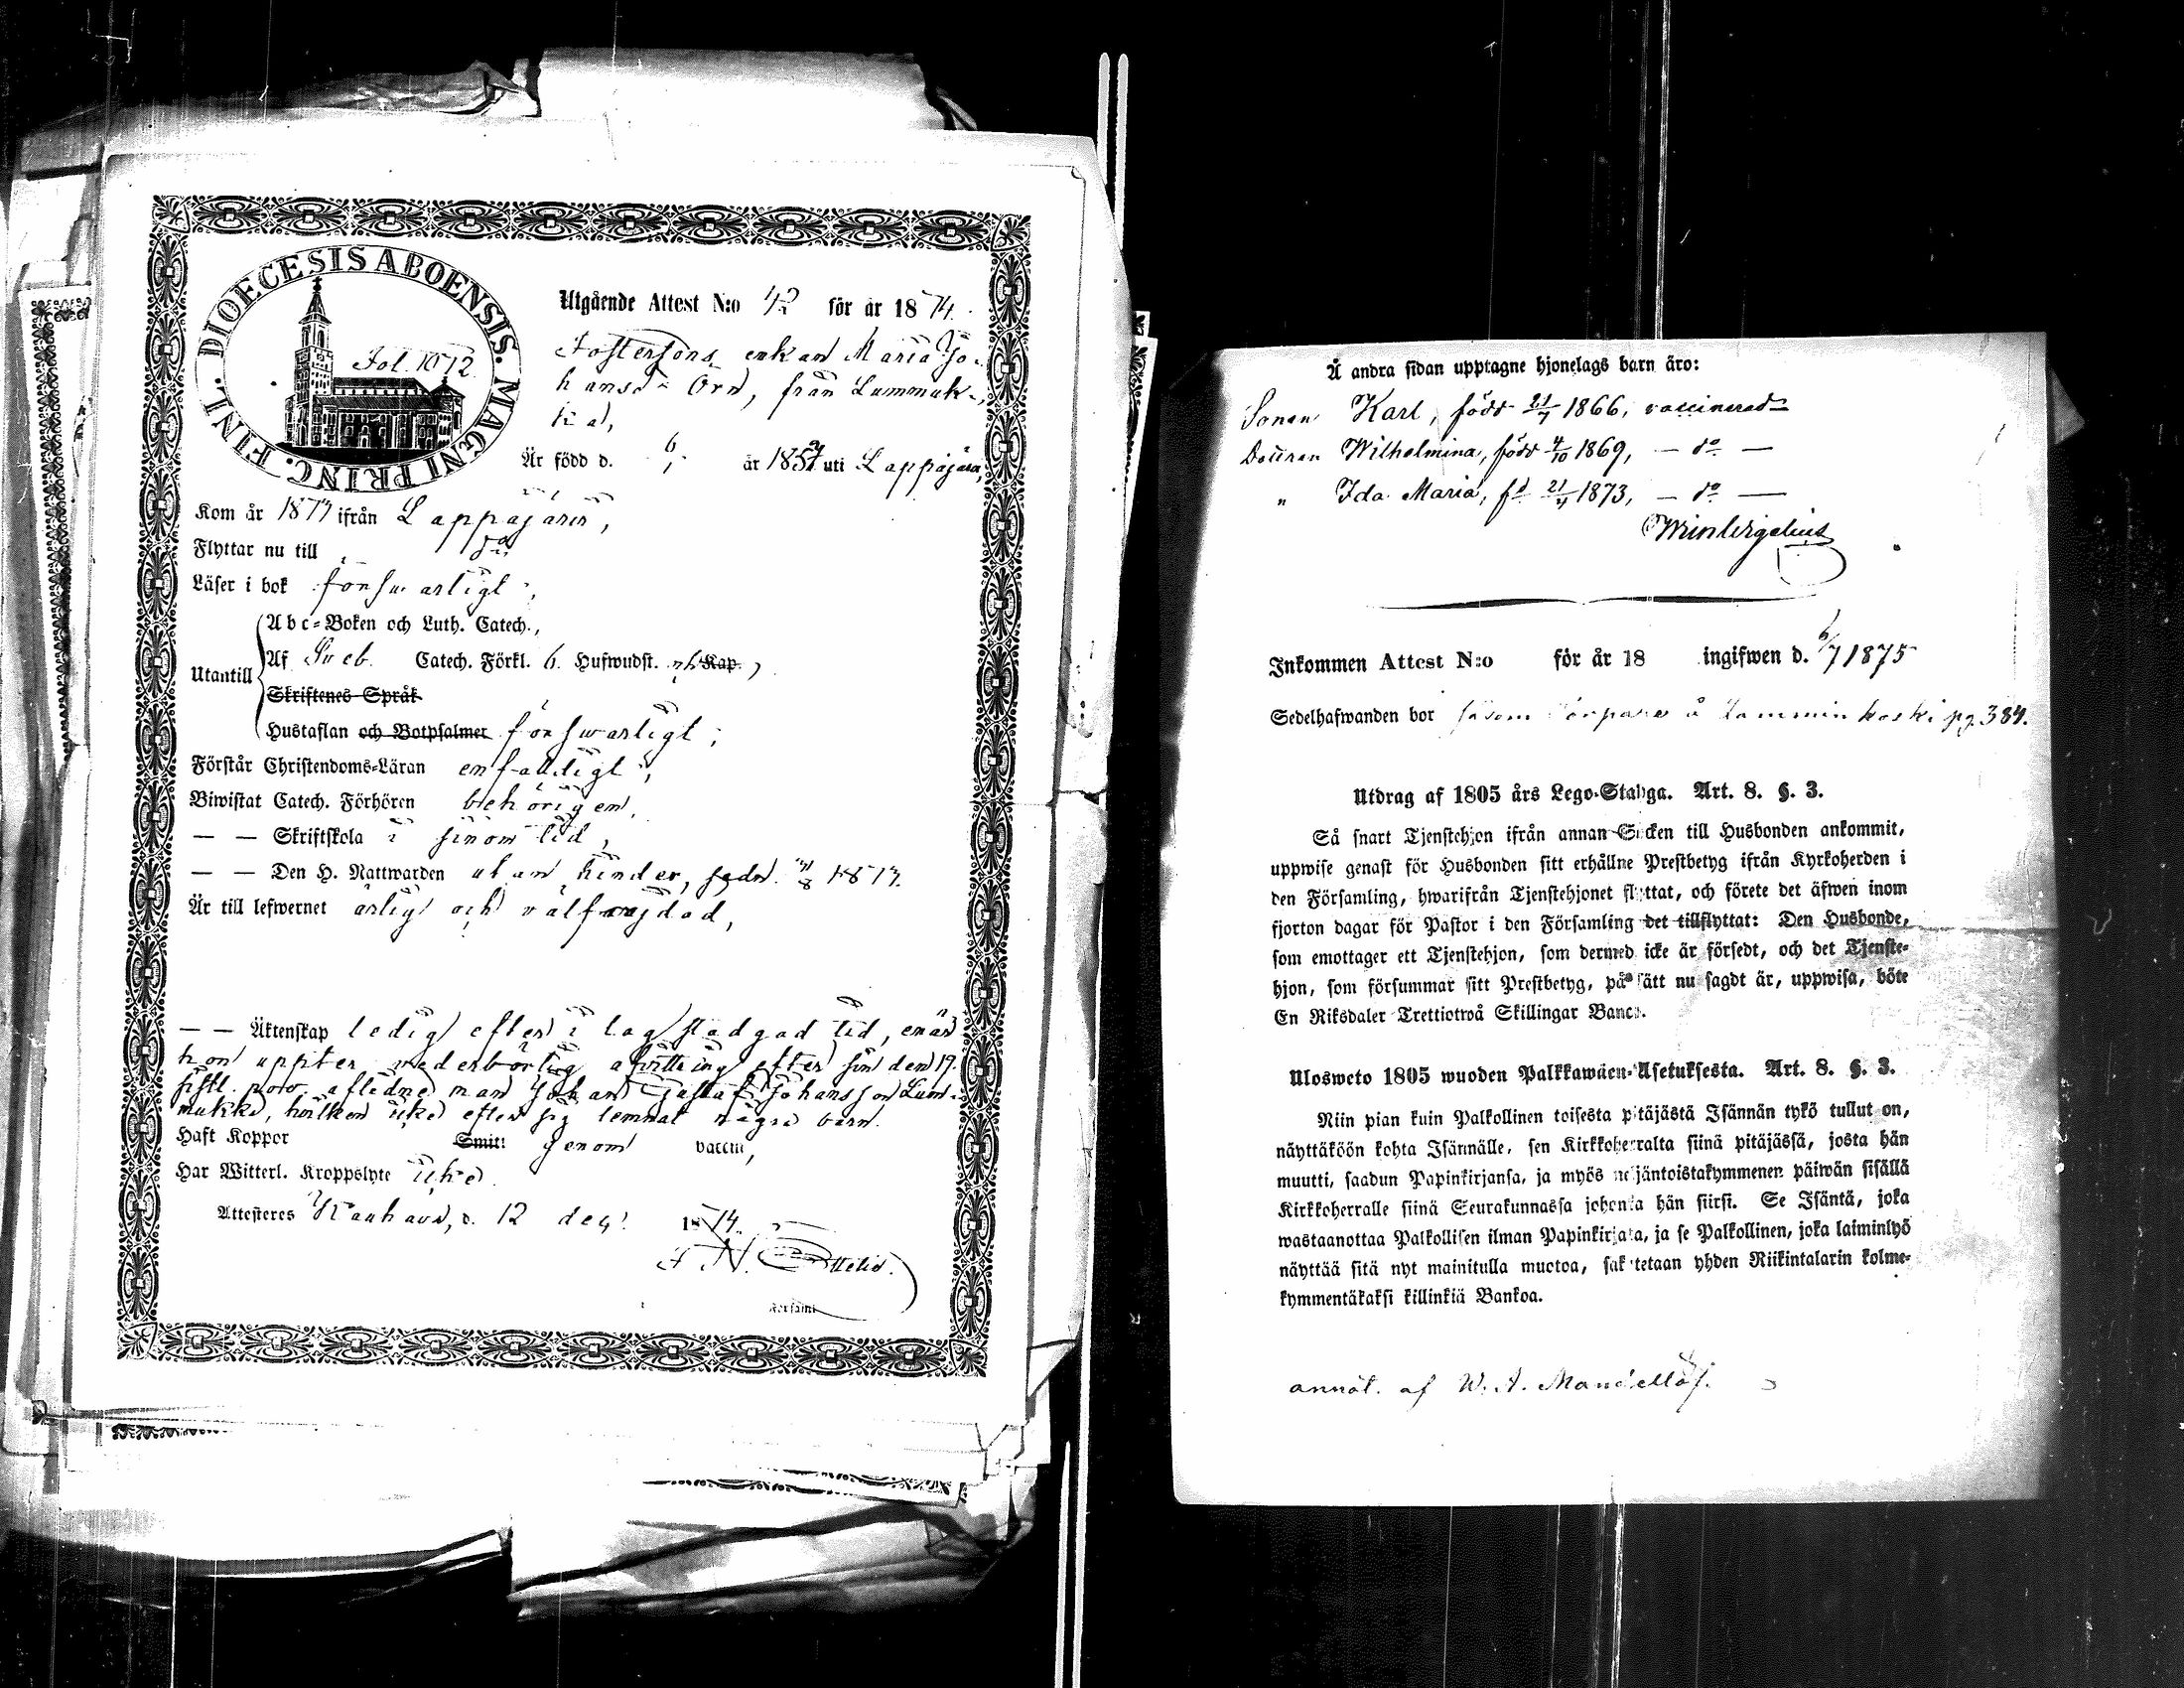 DIOECESIS ABOENSIS. MAGNI PRINC. FINL.
Fol. 1072.
Utgående Attest N:o 42 för år 1874.
Fostersons enkan Maria Jo-
hansd:r Örn, från Lummuk-
ka,
Är född d. år 185 uti Lappajärvi,
Kom år 1873 ifrån Lappajärvi,
Flyttar nu till do
Läser i bok försvarligt,
Abc-Boken och Luth. Catech.,
Utantill Af Sveb. Catech. Förkl. 6. Hufwudst. Kap.
Skriftenes Språk
Hustaflan och Botpsalmer försvarligt;
Förstår Christendoms-Läran enfaldigt,
Biwistat Catech. Förhören behörigen,
— — Skriftskola i sinom tid,
— — Den H. Nattwarden utan hinder, sedn. 1873.
Är till lefwernet ärlig och välfrejdad,
— — Äktenskap ledig efter i lag stadgad tid, enär
hon uppter vederbörlig afvittring efter sin den 19.
sistl. nov. aflidne man Johan Gustaf Johansson Lum-
mukka, hvilken icke efter sig lemnat några barn.
Haft Koppor Smitt genom vaccin,
Har Witterl. Kroppslyte icke
Attesteras Kauhava, d. 12 dec. 1874.
Å andra sidan upptagne hjonelags barn äro:
Sonen Karl, född 21/7 1866, vaccinerad
Dottren Wilhelmina, född 4/10 1869, — do —
" Ida Maria, fd 1873, — do —
Inkommen Attest N:o för år 18 ingifwen d. 6/7 1875
Sedelhafwanden bor såsom torpare å Tamminkoski pg 384.
Utdrag af 1805 års Lego-Stadga. Art. 8. §. 3.
Så snart Tjenstehjon ifrån annan Socken till Husbonden ankommit,
uppwise genast för Husbonden sitt erhållne Prestbetyg ifrån Kyrkoherden i
den Församling, hwarifrån Tjenstehjonet flyttat, och förete det äfwen inom
fjorton dagar för Pastor i den Församling det tillflyttat: Den Husbonde,
som emottager ett Tjenstehjon, som dermed icke är försedt, och det Tjenste-
hjon, som försummar sitt Prestbetyg, på sätt nu sagdt är, uppwisa, böte
En Riksdaler Trettiotwå Skillingar Banco.
Ulosweto 1805 wuoden Palkkawäen-Asetuksesta. Art. 8. §. 3.
Niin pian kuin Palkollinen toisesta pitäjästä Isännän tykö tullut on,
näyttäköön kohta Isännälle, sen Kirkkoherralta siinä pitäjässä, josta hän
muutti, saadun Papinkirjansa, ja myös neljäntoistakymmenen päiwän sisällä
Kirkkoherralle siinä Seurakunnassa johonka hän siirsi. Se Isäntä, joka
wastaanottaa Palkollisen ilman Papinkirjata, ja se Palkollinen, joka laiminlyö
näyttää sitä nyt mainitulla muotoa, sakotetaan yhden Riikintalarin kolme-
kymmentäkaksi killinkiä Bankoa.
annot. af W. A. Mandellöf.